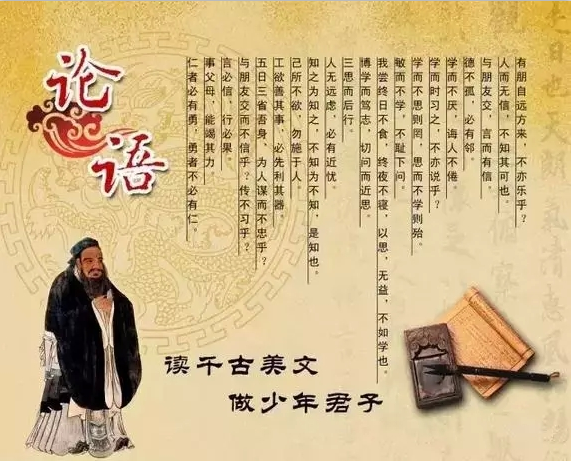 论语
有朋自远方来，不亦乐乎？
人而无信，不知其可也。
与朋友交，言而有信。
德不孤，必有邻。
学而不厌，诲人不倦。
学而时习之，不亦说乎？
学而不思则罔，思而不学则殆。
敏而不学，不耻下问。
我尝终日不食，终夜不寝，以思，无益，不如学也。
博学而笃志，切问而近思。
三思而后行。
人无远虑，必有近忧。
知之为知之，不知为不知，是知也。
己所不欲，勿施于人。
工欲善其事，必先利其器。
五日三省吾身，为人谋而不忠乎？
与朋友交而不信乎？传不习乎？
言必信，行必果。
事父母，能竭其力
仁者必有勇，勇者不必有仁。
读千古美文
做少年君子